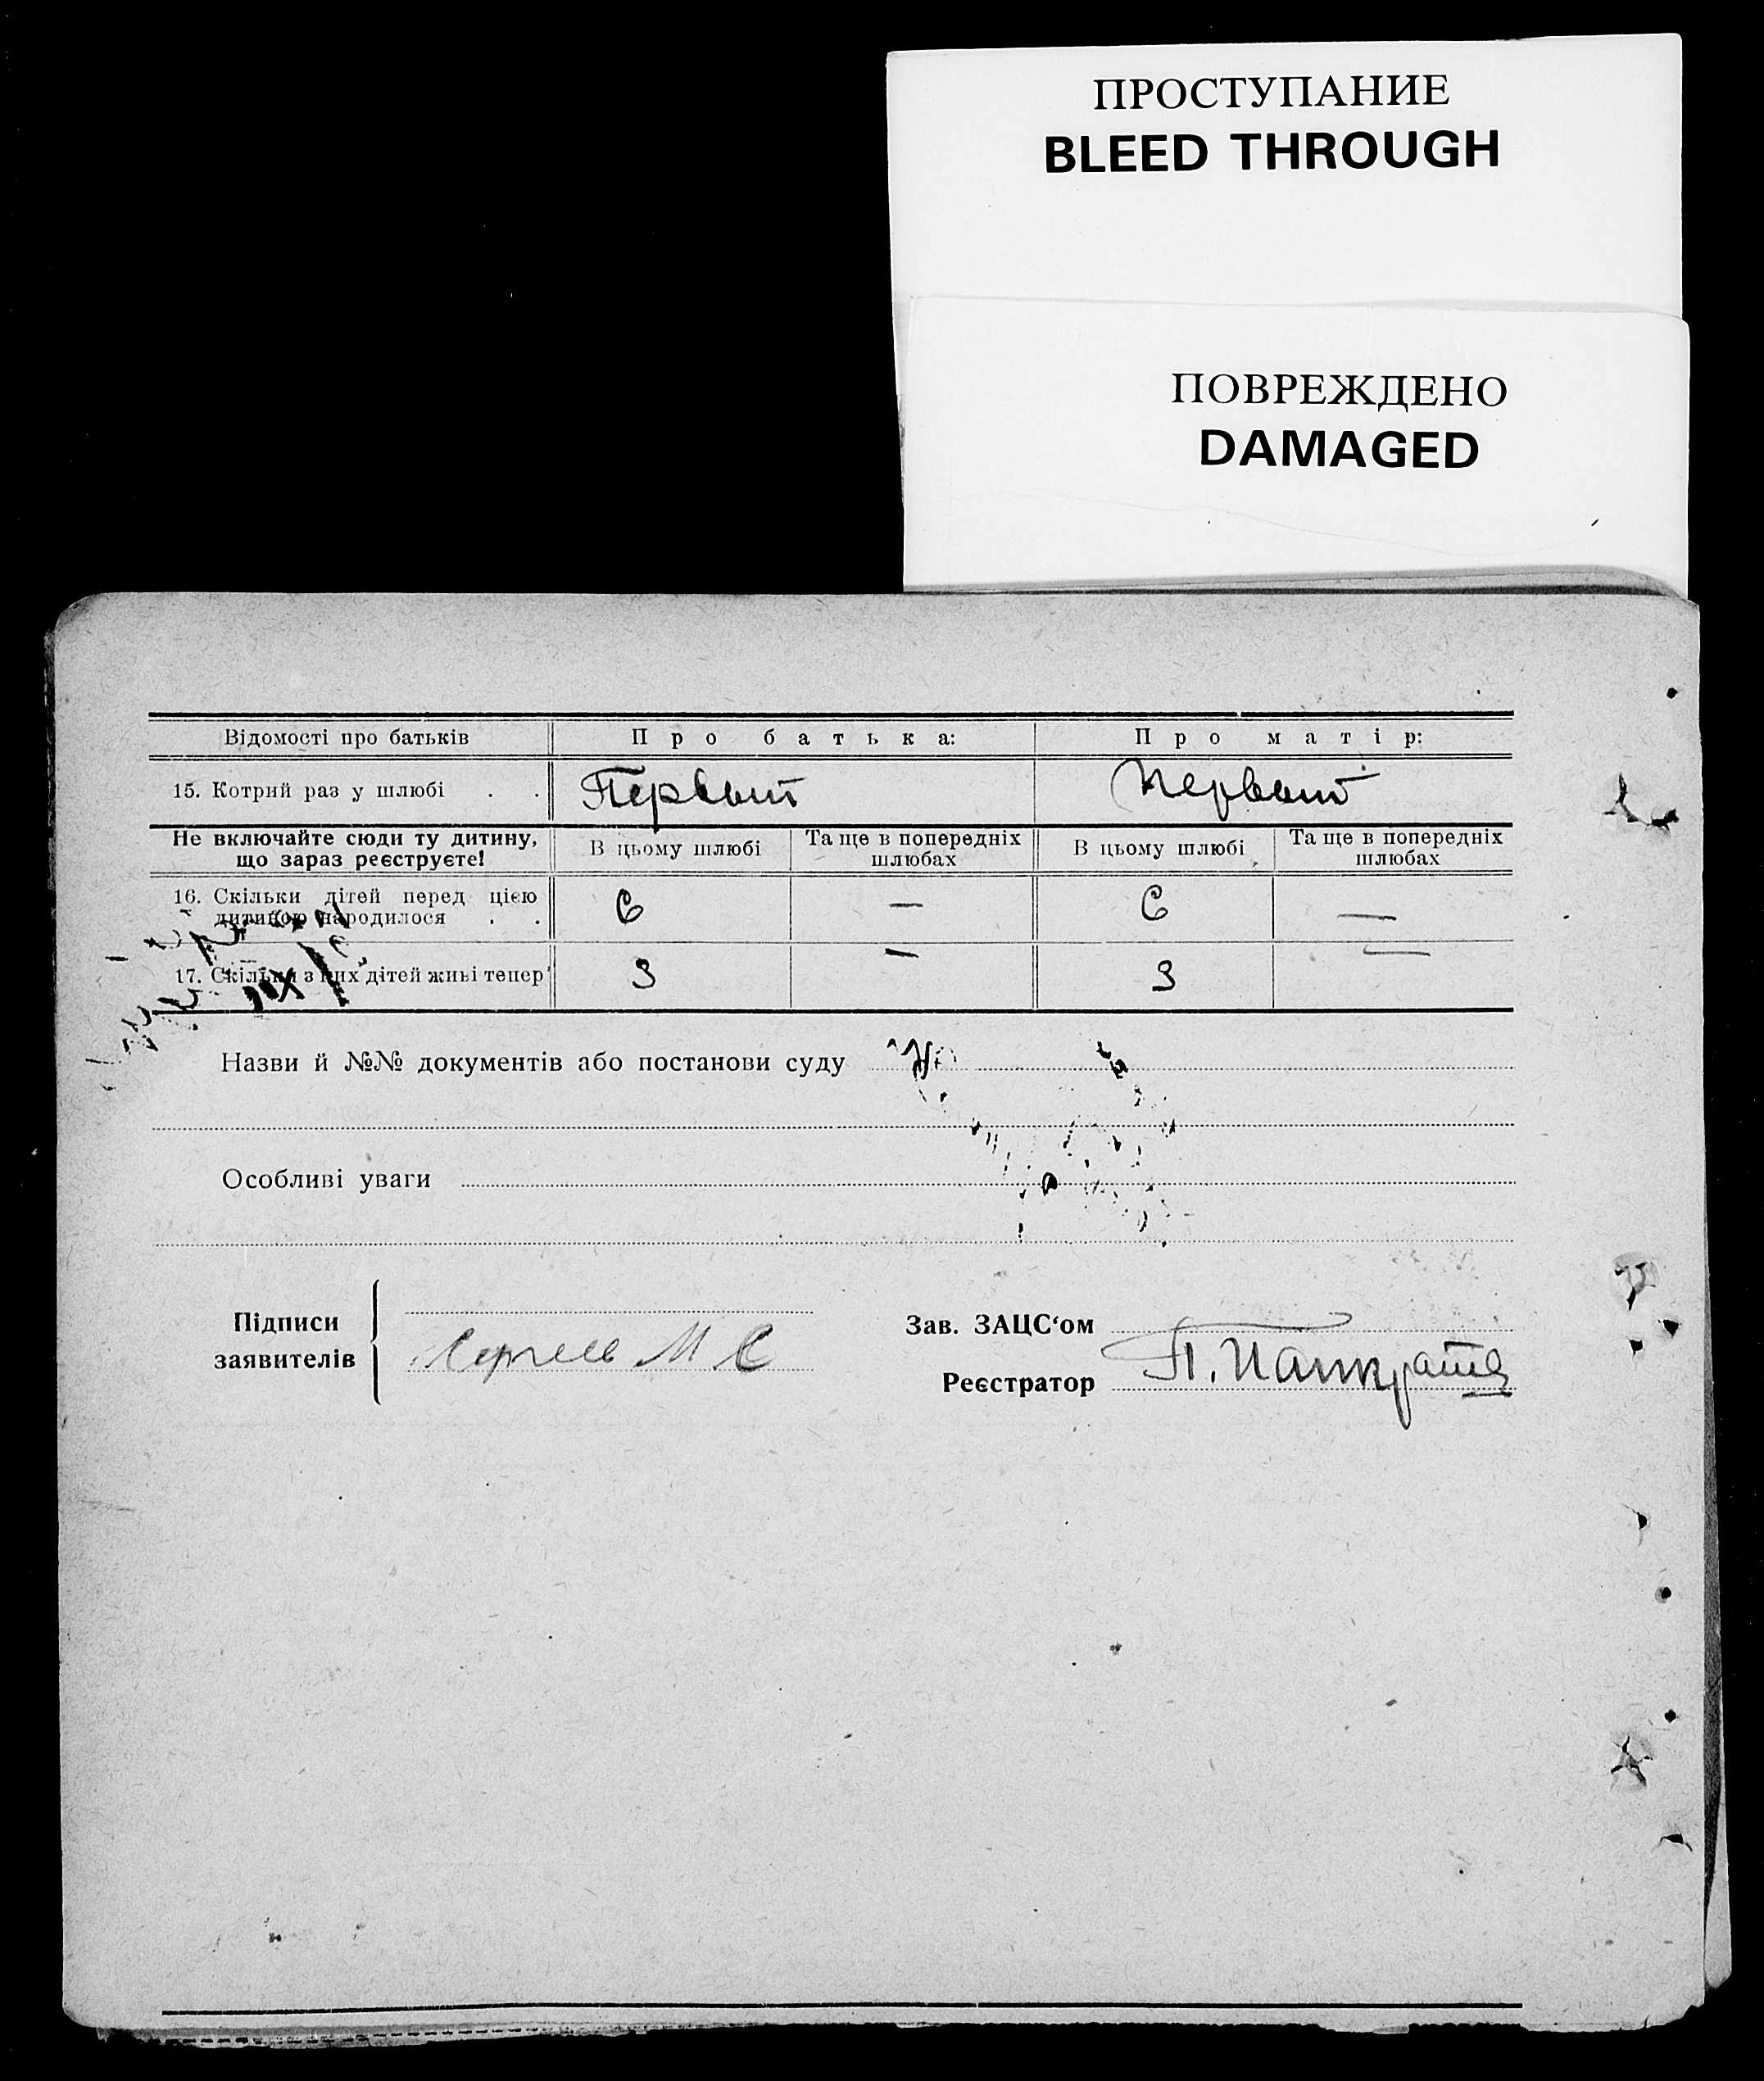 ПРОСТУПАНИЕ
BLEED THROUGH
ПОВРЕЖДЕНО
DAMAGED
Відомості про батьків Про батька: Про матір:
15. Котрий раз у шлюбі . . Первый Первый
Не включайте сюди ту дитину, що зараз реєструєте! В цьому шлюбі Та ще в попередніх шлюбах В цьому шлюбі Та ще в попередніх шлюбах
16. Скільки дітей перед цією дитиною народилося . . 6 — 6 —
17. Скільки з них дітей живі тепер 3 — 3 —
Назви й №№ документів або постанови суду
Особливі уваги
Підписи
заявителів
М С
Зав. ЗАЦС‘ом
Реєстратор П.